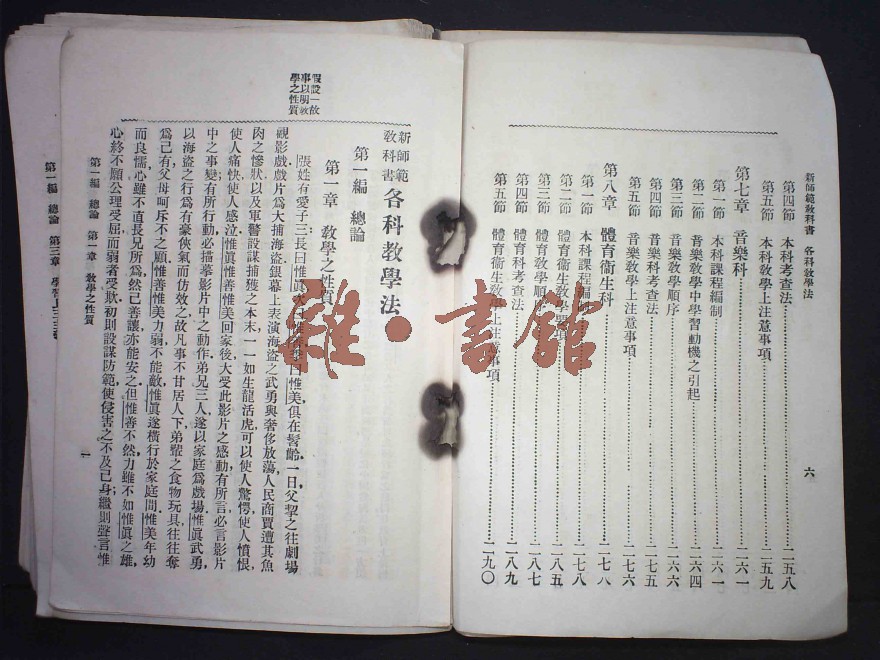 新師範教科書　各科教學法
六
第四節　本科考查法……二五八
第五節　本科教學上注意事項……二五九
第七章　音樂科……二六一
第一節　本科課程編制……二六一
第二節　音樂教學中學習動機之引起……二六四
第三節　音樂教學順序……二六六
第四節　音樂科考查法……二七五
第五節　音樂教學上注意事項……二七六
第八章　體育衞生科……二七八
第一節　本科課程編制……二七八
第二節　體育衞生教學……二八五
第三節　體育教學順……二八七
第四節　體育科考查法……二八九
第五節　體育衞生教學上注意事項……二九〇
雜·書館
假設一故
事以明教
學之性質
新師範
教科書 各科教學法
第一編　總論
第一章　教學之性質
張姓有愛子三，長曰惟眞，次曰惟善，季曰惟美，俱在髫齡。一日，父挈之往劇場
觀影戲，戲片爲大捕海盜，銀幕上表演海盜之武勇與奢侈放蕩，人民商賈遭其魚
肉之慘狀，以及軍警設謀捕獲之本末，一一如生龍活虎，可以使人驚愕，使人憤恨，
使人痛快，使人感泣。惟眞惟善惟美回家後，大受此影片之感動，有所言，必言影片
中之事變，有所行動，必描摹影片中之動作。弟兄三人，遂以家庭爲戲場。惟眞武勇，
以海盜之行爲有豪俠氣而仿效之，故凡事不甘居人下，弟輩之食物玩具，往往奪
爲己有，父母呵斥不之顧。惟善惟美力弱，不能敵惟眞，遂橫行於家庭間。惟美年幼
而良懦，心雖不直長兄所爲，然己善讓，亦能安之。但惟善不然，力雖不如惟眞之雄，
心終不願公理受屈，而弱者受欺，初則設謀防範，使侵害之不及己身，繼則聲言惟
第一編　總論　第一章　教學之性質
一
第一編　總論　第三章